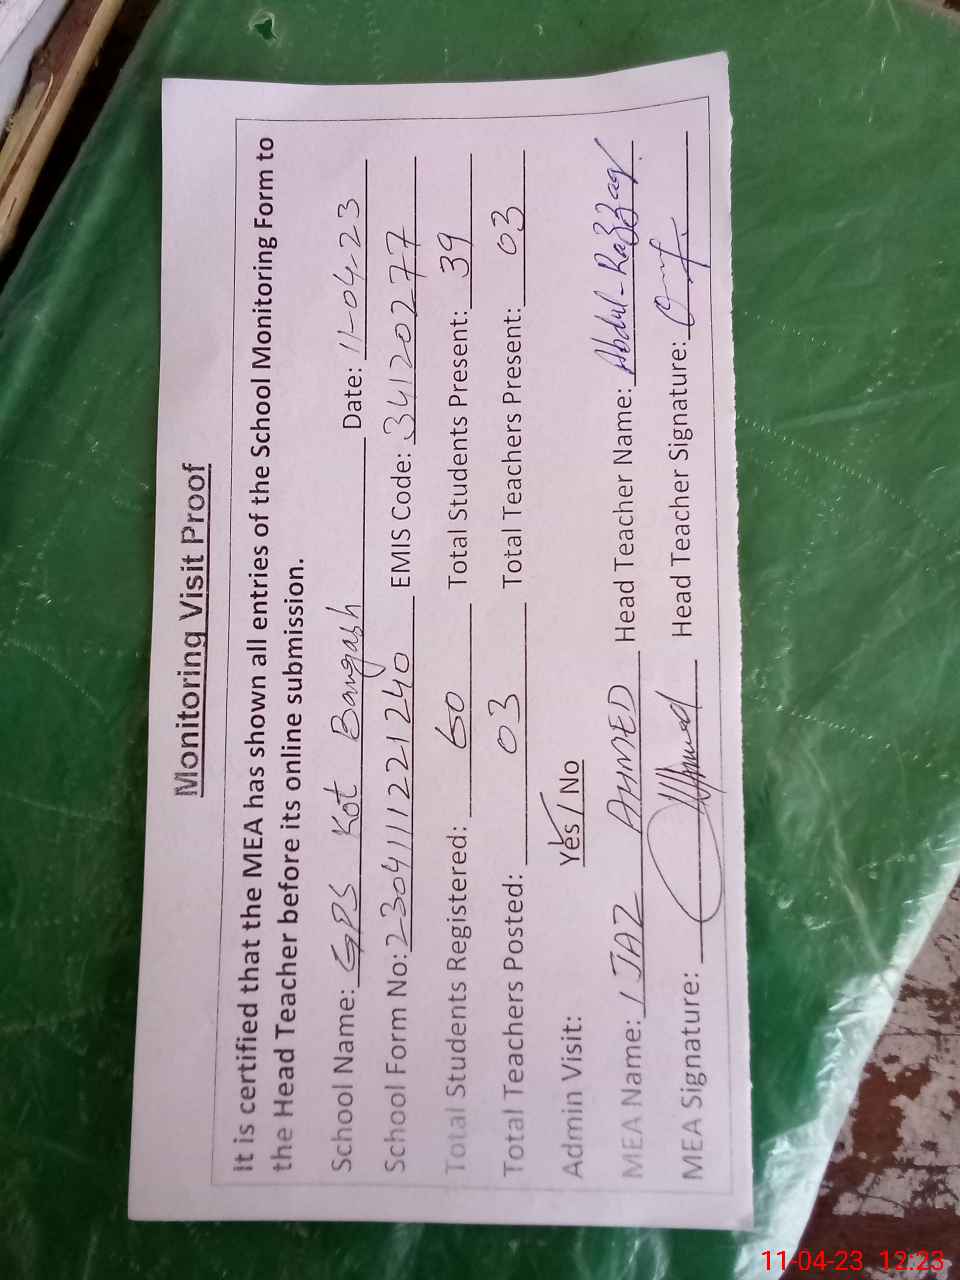 Monitoring Visit Proof
It is certified that the MEA has shown all entries of the School Monitoring Form to
the Head Teacher before its online submission.
School Name: GPS Kot Bangash Date: 11-04-23
School Form No: 2304111221240 EMIS Code: 34120277
Total Students Registered: 60 Total Students Present: 39
Total Teachers Posted: 03 Total Teachers Present: 03
Admin Visit: Yes / No
MEA Name: IJAZ AHMED Head Teacher Name: Abdul-Razzaq
MEA Signature: Head Teacher Signature:
11-04-23 12:23